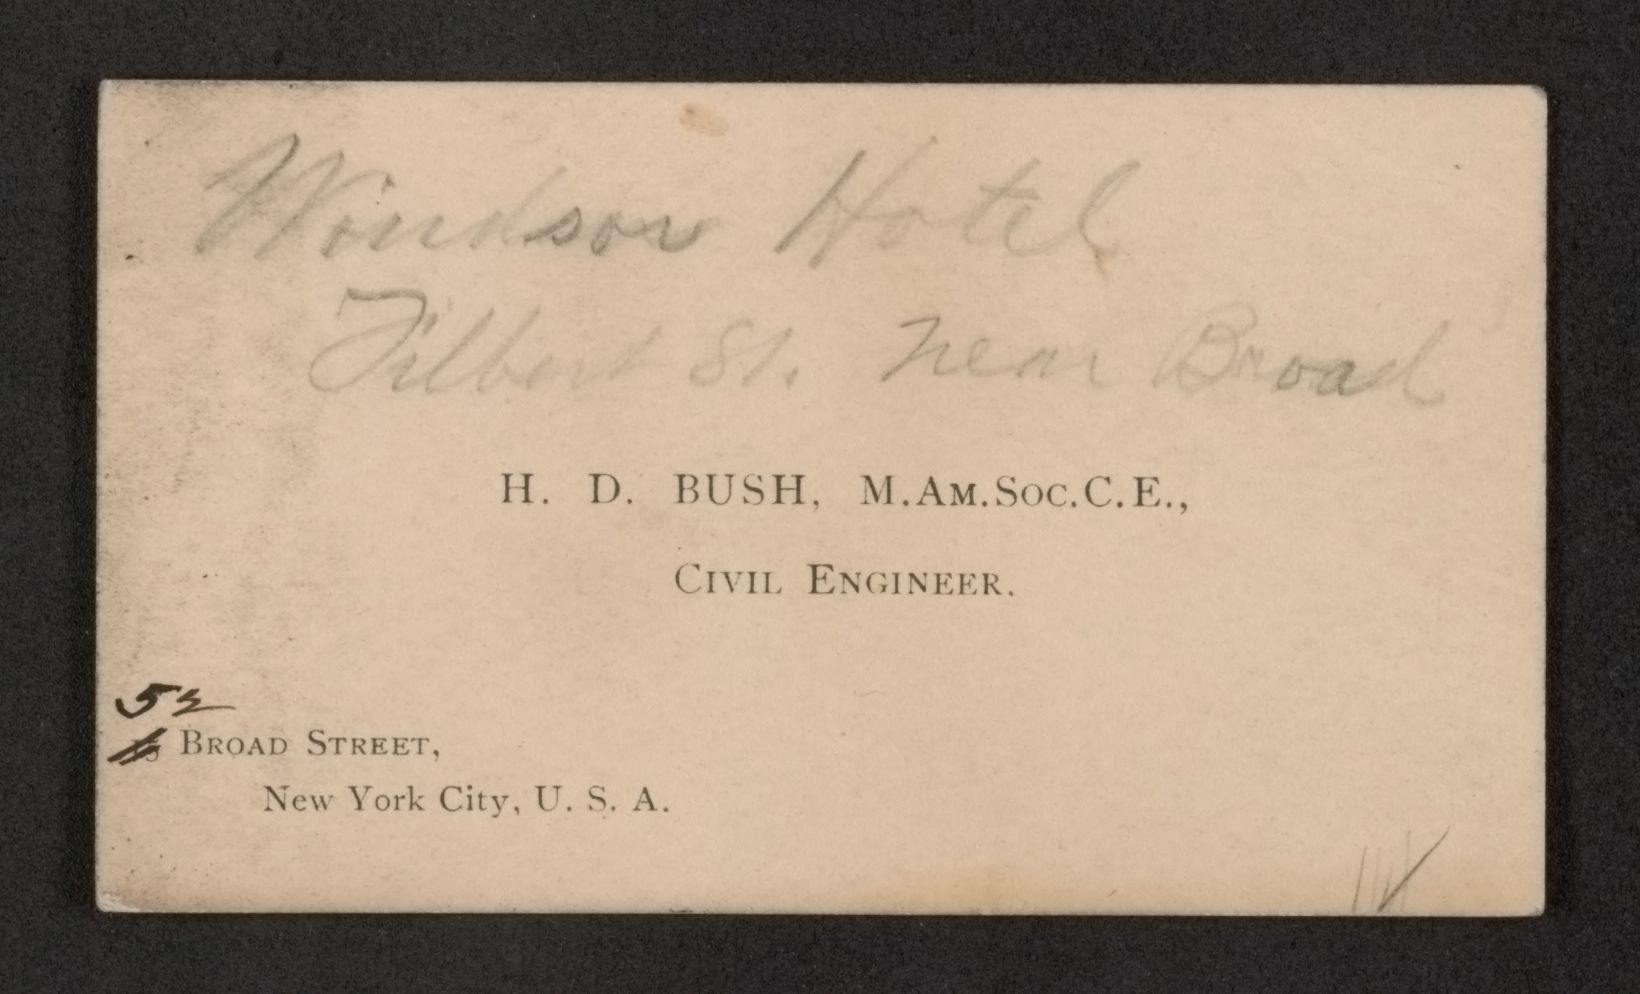 Windsor Hotel
Filbert St. near Broad
H. D. BUSH, M.AM.SOC.C.E.,
CIVIL ENGINEER.
52
BROAD STREET,
New York City, U. S. A.